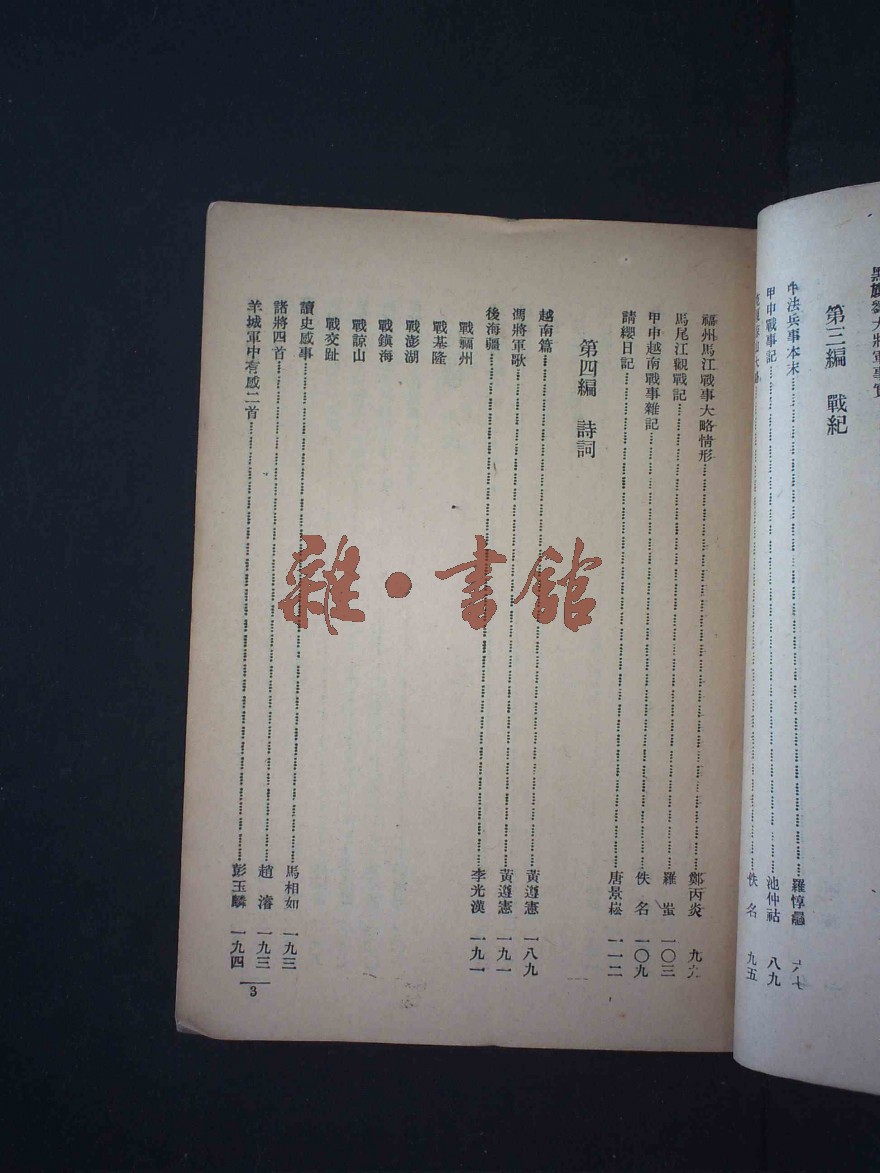 黑旗劉大將軍事實
第三編　戰紀
中法兵事本末 羅惇曧 六七
甲申戰事記 池仲祜 八九
佚名 九五
福州馬江戰事大略情形 鄭丙炎 九九
馬尾江觀戰記 羅蚩 一〇三
甲申越南戰事雜記 佚名 一〇九
請纓日記 唐景崧 一一二
第四編　詩詞
越南篇 黃遵憲 一八九
馮將軍歌 黃遵憲 一九一
後海疆 李光漢 一九一
戰福州
戰基隆
戰澎湖
戰鎮海
戰諒山
戰交趾
讀史感事 馬相如 一九三
諸將四首 趙濬 一九三
羊城軍中有感二首 彭玉麟 一九四
3
雜·書館